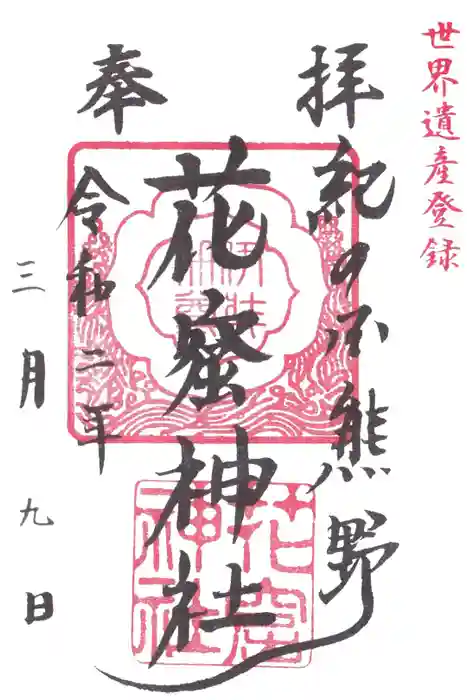 世界遺産登録
奉拝
紀の国熊野
花窟神社
令和二年
三月九日
花窟
神社